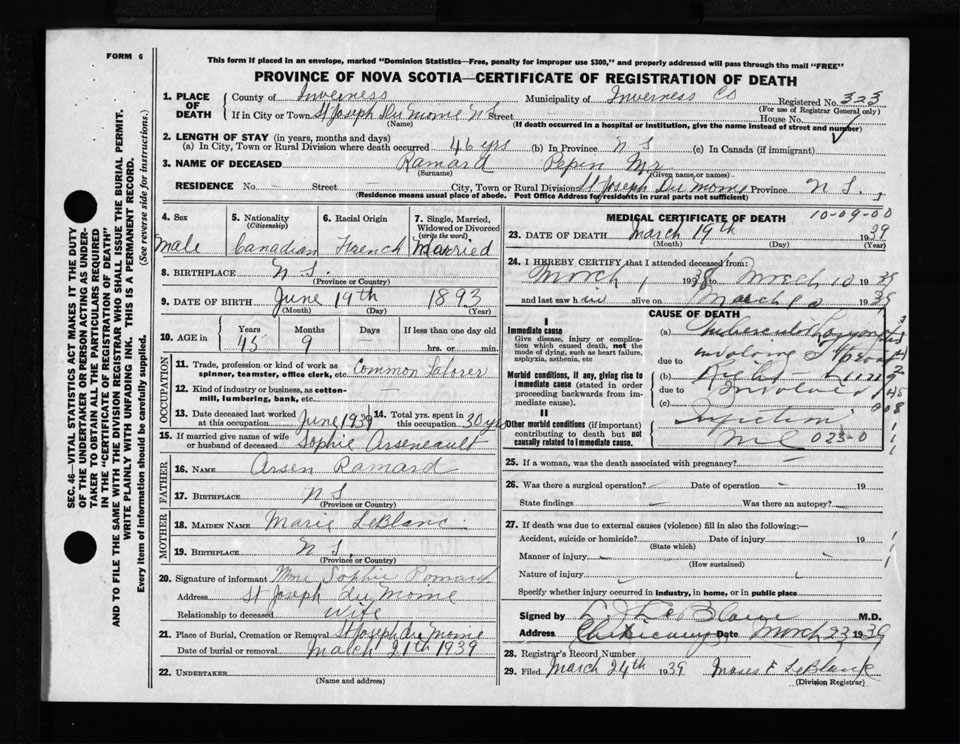 FORM 6
This form if placed in an envelope, marked "Dominion Statistics—Free, penalty for improper use $300," and properly addressed will pass through the mail "FREE"
PROVINCE OF NOVA SCOTIA—CERTIFICATE OF REGISTRATION OF DEATH
1. PLACE OF DEATH
County of Inverness Municipality of Inverness Co Registered No. 323
(For use of Registrar General only)
If in City or Town St Joseph Du Moine N S Street House No.
(Name) (If death occurred in a hospital or institution, give the name instead of street and number)
2. LENGTH OF STAY (in years, months and days)
(a) In City, Town or Rural Division where death occurred 46 yrs (b) In Province N S (c) In Canada (if immigrant)
3. NAME OF DECEASED Ramard Pepin Mr
(Surname) (Given name, or names)
RESIDENCE No. — Street — City, Town or Rural Division St Joseph Du Moine Province N S.
(Residence means usual place of abode. Post Office Address for residents in rural parts not sufficient)
4. Sex 5. Nationality 6. Racial Origin 7. Single, Married, Widowed or Divorced
(Citizenship) (write the word)
Male Canadian French Married
8. BIRTHPLACE N S.
(Province or Country)
9. DATE OF BIRTH June 19th 1893
(Month) (Day) (Year)
10. AGE in Years Months Days If less than one day old
45 9 — hrs. or min.
OCCUPATION
11. Trade, profession or kind of work as spinner, teamster, office clerk, etc. Common Laborer
12. Kind of industry or business, as cotton-mill, lumbering, bank, etc.
13. Date deceased last worked at this occupation June 1939 14. Total yrs. spent in this occupation 30 yrs
15. If married give name of wife or husband of deceased Sophie Arseneault
FATHER
16. NAME Arsen Ramard
17. BIRTHPLACE N S
(Province or Country)
MOTHER
18. MAIDEN NAME Marie LeBlanc
19. BIRTHPLACE N S.
(Province or Country)
20. Signature of informant Mme Sophie Romard
Address St Joseph du Moine
Relationship to deceased Wife
21. Place of Burial, Cremation or Removal St Joseph du Moine
Date of burial or removal March 21th 1939
22. UNDERTAKER
(Name and address)
MEDICAL CERTIFICATE OF DEATH 10-09-00
23. DATE OF DEATH March 19th 1939
(Month) (Day) (Year)
24. I HEREBY CERTIFY that I attended deceased from:
March 1 1939 to March 10 1939
and last saw him alive on March 10 1939
CAUSE OF DEATH
I
Immediate cause
Give disease, injury, or complication which caused death, not the mode of dying, such as heart failure, asphyxia, asthenia, etc
(a)
due to
Morbid conditions, if any, giving rise to immediate cause (stated in order proceeding backwards from immediate cause).
(b)
due to
(c)
II
Other morbid conditions (if important) contributing to death but not causally related to immediate cause.
Infection
023-0
25. If a woman, was the death associated with pregnancy?
26. Was there a surgical operation? — Date of operation — 19
State findings Was there an autopsy?
27. If death was due to external causes (violence) fill in also the following:—
Accident, suicide or homicide? Date of injury 19
(State which)
Manner of injury
(How sustained)
Nature of injury
Specify whether injury occurred in industry, in home, or in public place
Signed by L J LeBlanc M.D.
Address Cheticamp Date March 23, 1939
28. Registrar's Record Number
29. Filed March 24th 1939 Moses F LeBlank
(Division Registrar)
SEC. 46—VITAL STATISTICS ACT MAKES IT THE DUTY
OF THE UNDERTAKER OR PERSON ACTING AS UNDER-
TAKER TO OBTAIN ALL THE PARTICULARS REQUIRED
IN THE "CERTIFICATE OF REGISTRATION OF DEATH"
AND TO FILE THE SAME WITH THE DIVISION REGISTRAR WHO SHALL ISSUE THE BURIAL PERMIT.
WRITE PLAINLY WITH UNFADING INK. THIS IS A PERMANENT RECORD.
Every item of information should be carefully supplied. (See reverse side for instructions.)